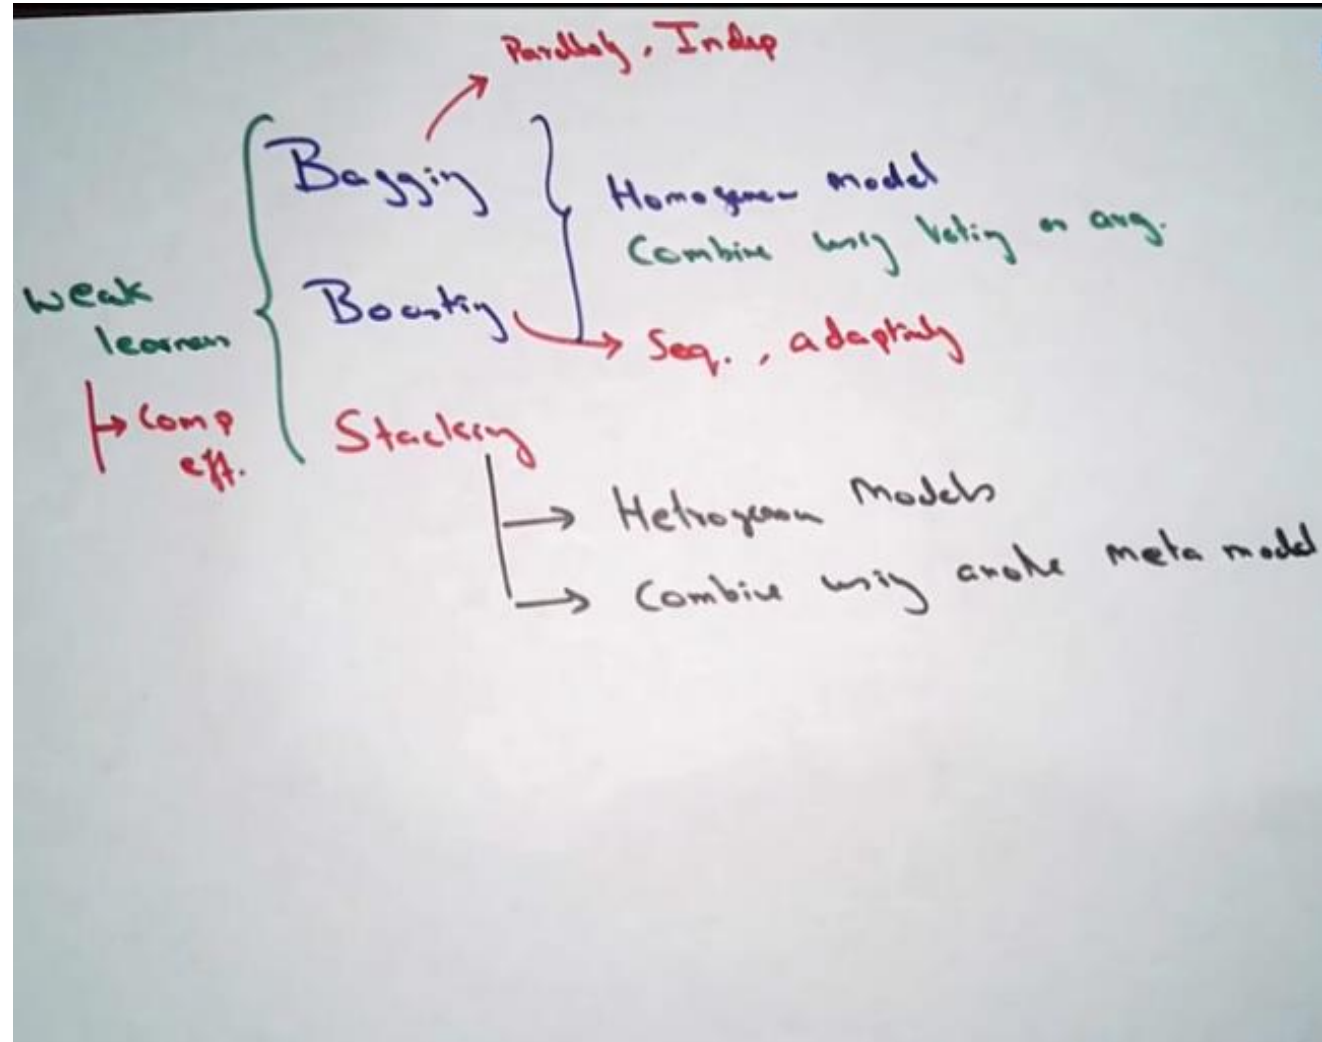 Parallely, Indep
Bagging
Homogenous model
Combine using Voting or avg.
Weak
learners
Boosting
Seq., adaptively
Comp
eff.
Stacking
Hetrogenous Models
Combine using another meta model